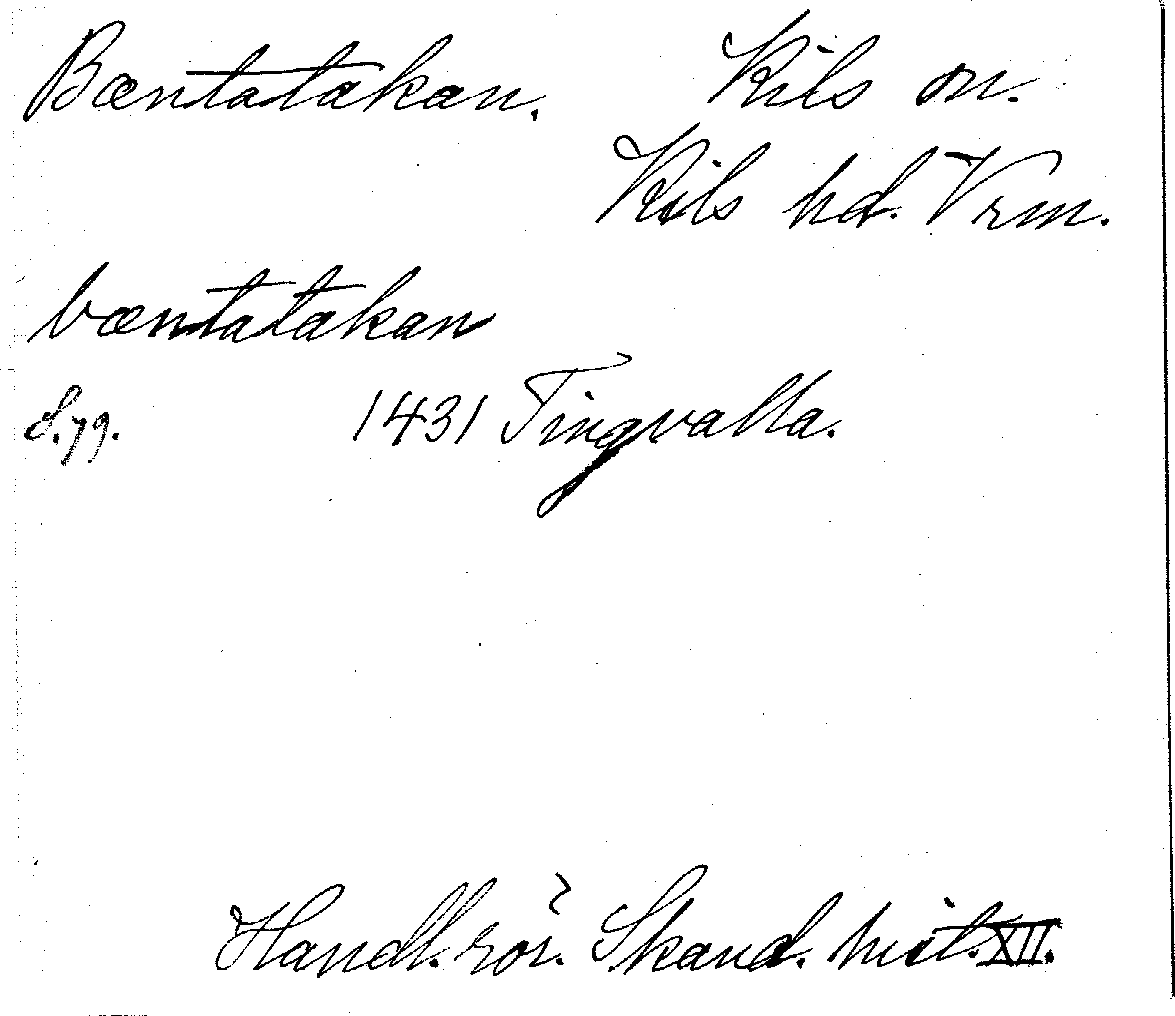 Bæntatakan. Kils sn.
Kils hd. Vrm.
bæntatakan
S. 79. 1431 Tingvalla.
Handl. rör. Skand. hist. XII.